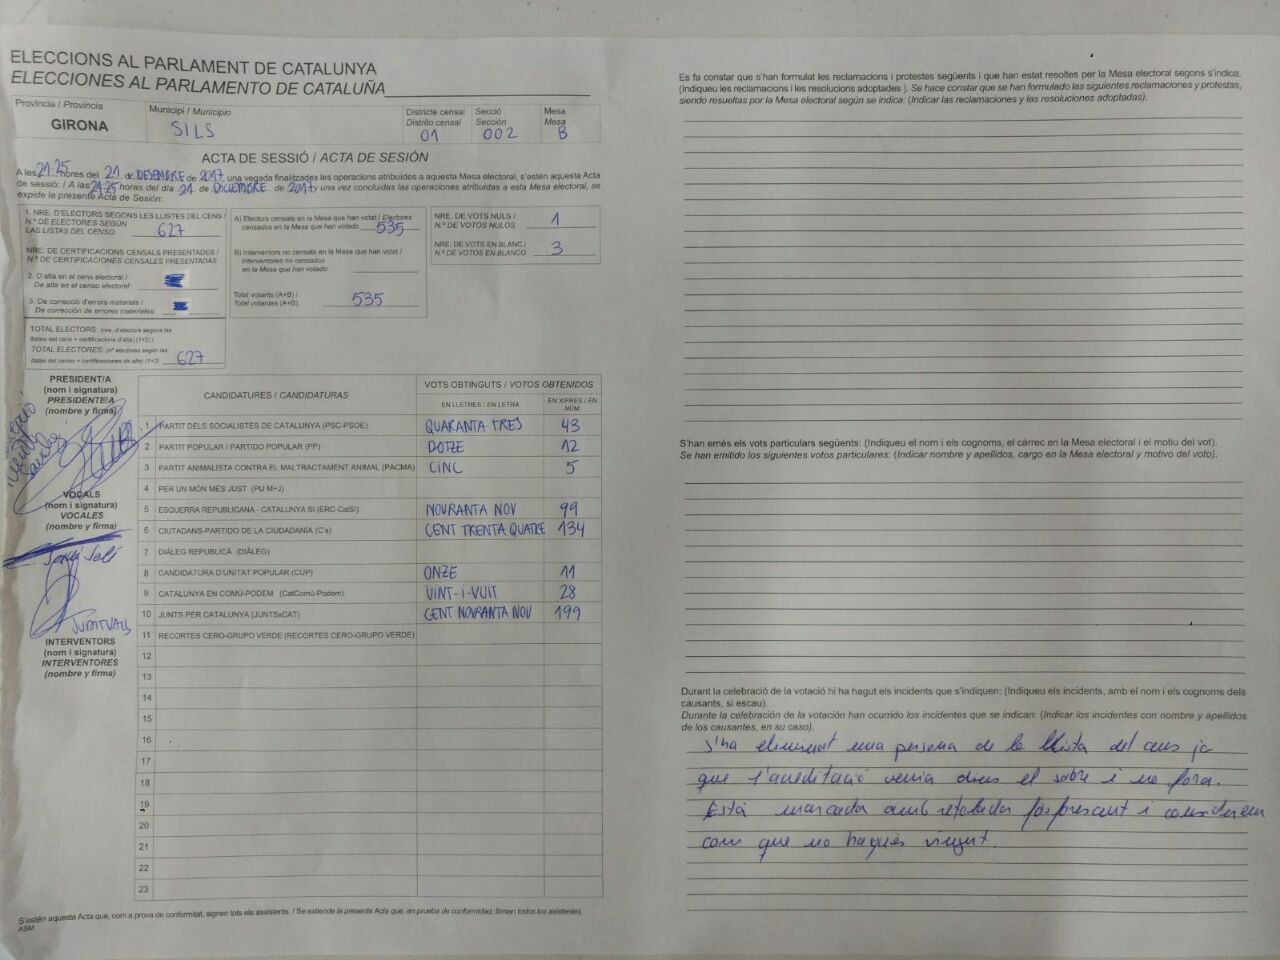 ELECCIONS AL PARLAMENT DE CATALUNYA
ELECCIONES AL PARLAMENTO DE CATALUÑA
Província / Provincia
GIRONA
Municipi / Municipio
SILS
Districte censal
Distrito censal
01
Secció
Sección
002
Mesa
Mesa
B
ACTA DE SESSIÓ / ACTA DE SESIÓN
A les 21:25 hores del 21 de DESEMBRE de 2017 una vegada finalitzades les operacions atribuïdes a aquesta Mesa electoral, s'estén aquesta Acta
de sessió: / A las 21:25 horas del día 21 de DICIEMBRE de 2017 y una vez concluidas las operaciones atribuidas a esta Mesa electoral, se
expide la presente Acta de Sesión:
1. NRE. D'ELECTORS SEGONS LES LLISTES DEL CENS /
N.º DE ELECTORES SEGÚN
LAS LISTAS DEL CENSO 627
NRE. DE CERTIFICACIONS CENSALS PRESENTADES /
N.º DE CERTIFICACIONES CENSALES PRESENTADAS
2. D'alta en el cens electoral /
De alta en el censo electoral:
3. De correcció d'errors materials /
De corrección de errores materiales:
TOTAL ELECTORS: (nre. d'electors segons les
llistes del cens + certificacions d'alta) (1+2) /
TOTAL ELECTORES: (nº electores según las
listas del censo + certificaciones de alta) (1+2) 627
A) Electors censats en la Mesa que han votat / Electores
censados en la Mesa que han votado 535
B) Interventors no censats en la Mesa que han votat /
Interventores no censados
en la Mesa que han votado
Total votants (A+B) /
Total votantes (A+B) 535
NRE. DE VOTS NULS /
N.º DE VOTOS NULOS 1
NRE. DE VOTS EN BLANC /
N.º DE VOTOS EN BLANCO 3
PRESIDENT/A
(nom i signatura)
PRESIDENTE/A
(nombre y firma)
VOCALS
(nom i signatura)
VOCALES
(nombre y firma)
INTERVENTORS
(nom i signatura)
INTERVENTORES
(nombre y firma)
CANDIDATURES / CANDIDATURAS
VOTS OBTINGUTS / VOTOS OBTENIDOS
EN LLETRES / EN LETRA
EN XIFRES / EN NÚM.
1 PARTIT DELS SOCIALISTES DE CATALUNYA (PSC-PSOE) QUARANTA TRES 43
2 PARTIT POPULAR / PARTIDO POPULAR (PP) DOTZE 12
3 PARTIT ANIMALISTA CONTRA EL MALTRACTAMENT ANIMAL (PACMA) CINC 5
4 PER UN MÓN MÉS JUST (PUM+J)
5 ESQUERRA REPUBLICANA - CATALUNYA SÍ (ERC-CatSí) NOURANTA NOV 99
6 CIUTADANS-PARTIDO DE LA CIUDADANÍA (C's) CENT TRENTA QUATRE 134
7 DIÀLEG REPUBLICÀ (DIÀLEG)
8 CANDIDATURA D'UNITAT POPULAR (CUP) ONZE 11
9 CATALUNYA EN COMÚ-PODEM (CatComú-Podem) VINT-I-VUIT 28
10 JUNTS PER CATALUNYA (JUNTSxCAT) CENT NOURANTA NOV 199
11 RECORTES CERO-GRUPO VERDE (RECORTES CERO-GRUPO VERDE)
12
13
14
15
16
17
18
19
20
21
22
23
S'estén aquesta Acta que, com a prova de conformitat, signen tots els assistents. / Se extiende la presente Acta que, en prueba de conformidad, firman todos los asistentes.
ASM
Es fa constar que s'han formulat les reclamacions i protestes següents i que han estat resoltes per la Mesa electoral segons s'indica:
(Indiqueu les reclamacions i les resolucions adoptades ). Se hace constar que se han formulado las siguientes reclamaciones y protestas,
siendo resueltas por la Mesa electoral según se indica: (Indicar las reclamaciones y las resoluciones adoptadas).
S'han emès els vots particulars següents: (Indiqueu el nom i els cognoms, el càrrec en la Mesa electoral i el motiu del vot).
Se han emitido los siguientes votos particulares: (Indicar nombre y apellidos, cargo en la Mesa electoral y motivo del voto).
Durant la celebració de la votació hi ha hagut els incidents que s'indiquen: (Indiqueu els incidents, amb el nom i els cognoms dels
causants, si escau).
Durante la celebración de la votación han ocurrido los incidentes que se indican: (Indicar los incidentes con nombre y apellidos
de los causantes, en su caso).
s'ha eliminat una persona de la llista del cens ja
que l'acreditació venia dins el sobre i no fora.
Està marcada amb retolador fosforescent i considerem
com que no hagués vingut.